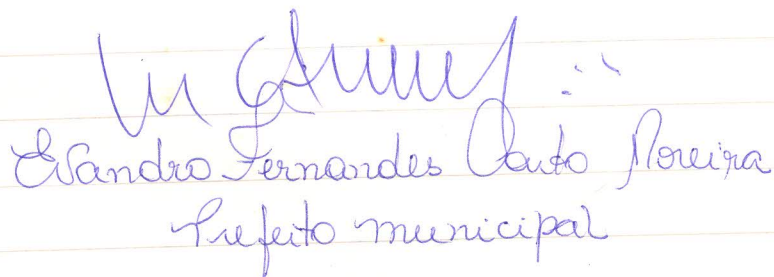 Evandro Fernandes Couto Moreira
Prefeito municipal